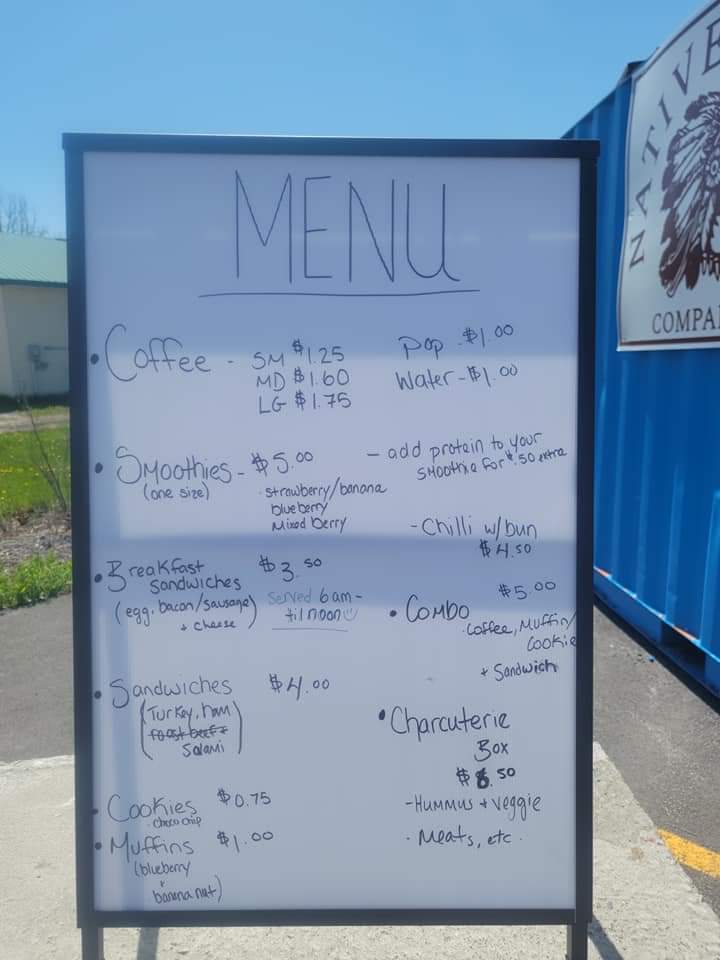 MENU
• Coffee - SM $1.25
MD $1.60
LG $1.75
Pop - $1.00
Water - $1.00
• Smoothies - $5.00
(one size)
· strawberry/banana
blueberry
Mixed berry
- add protein to your
smoothie for $.50 extra
- Chilli w/bun
$4.50
• Breakfast $3.50
Sandwiches
(egg, bacon/sausage)
+ cheese
Served 6am -
til noon
• Combo $5.00
· Coffee, Muffin/
Cookie
+ Sandwich
• Sandwiches $4.00
(Turkey, ham
roast beef +
Salami)
• Charcuterie
Box
$6.50
- Hummus + veggie
· Meats, etc.
• Cookies $0.75
· choco chip
• Muffins $1.00
(blueberry
+
banana nut)
NATIVE
COMPA